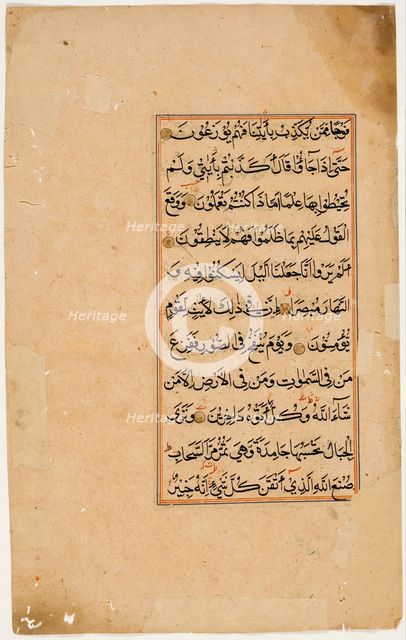 فوجا ممن يكذب بأيتنا فهم يوزعون
حتى اذا جاؤا قال اكذبتم بأيتي ولم
تحيطوا بها علما اماذا كنتم تعملون ووقع
القول عليهم بما ظلموا فهم لا ينطقون
الم يروا انا جعلنا اليل ليسكنوا فيه و
النهار مبصرا ان في ذلك لأيت لقوم
يؤمنون ويوم ينفخ في الصور ففزع
من في السموات ومن في الارض الا من
شاء الله وكل أتوه داخرين وترى
الجبال تحسبها جامدة وهي تمر مر السحاب
صنع الله الذي اتقن كل شيء انه خبير
Heritage
Heritage
Heritage
Heritage
Heritage
Heritage